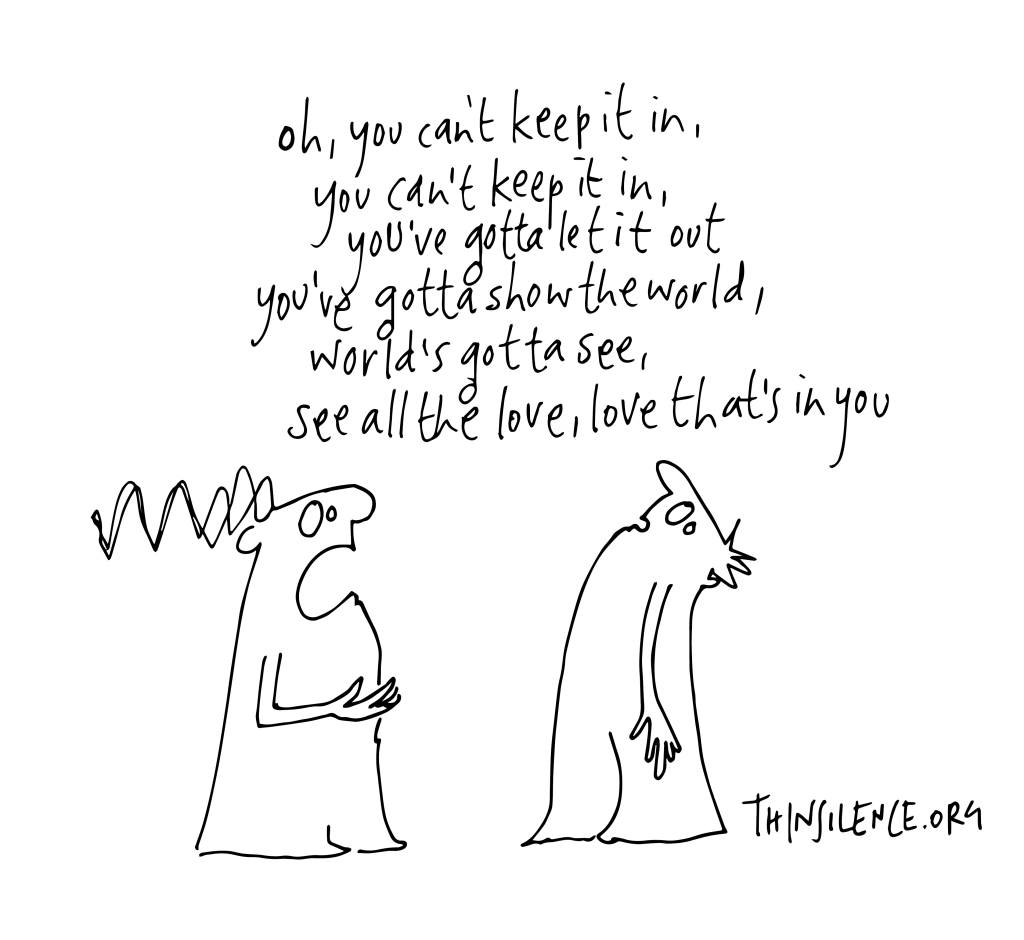 oh, you can't keep it in,
you can't keep it in,
you've gotta let it out
you've gotta show the world,
world's gotta see,
see all the love, love that's in you
THINSILENCE.ORG